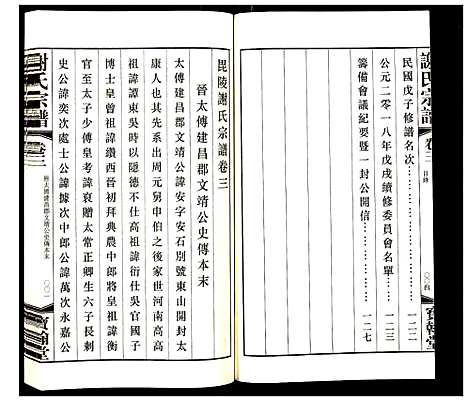 謝氏宗譜
卷三
目錄
寶翰堂
民國戊子修譜名次
一二二
公元二〇一八年戊戌續修委員會名單
一二三
籌備會議紀要暨一封公開信
一二七
毘陵謝氏宗譜卷三
晉太傅建昌郡文靖公史傳本末
太傅建昌郡文靖公諱安字安石別號東山開封太
康人也其先系出周元舅申伯之後家世河南高高
祖諱譚東吳時以問俗不仕高祖諱纘吳官國子
博士皇曾祖諱纘西晉初拜典農中郎將皇祖諱衡
官至太子少傅皇考諱裒贈太常正卿生六子長剌
史公諱奕次處士公諱據次中郎公諱萬次永嘉公
謝氏宗譜
卷三
晉太傅建昌郡文靖公史傳本末
〇〇一
寶翰堂